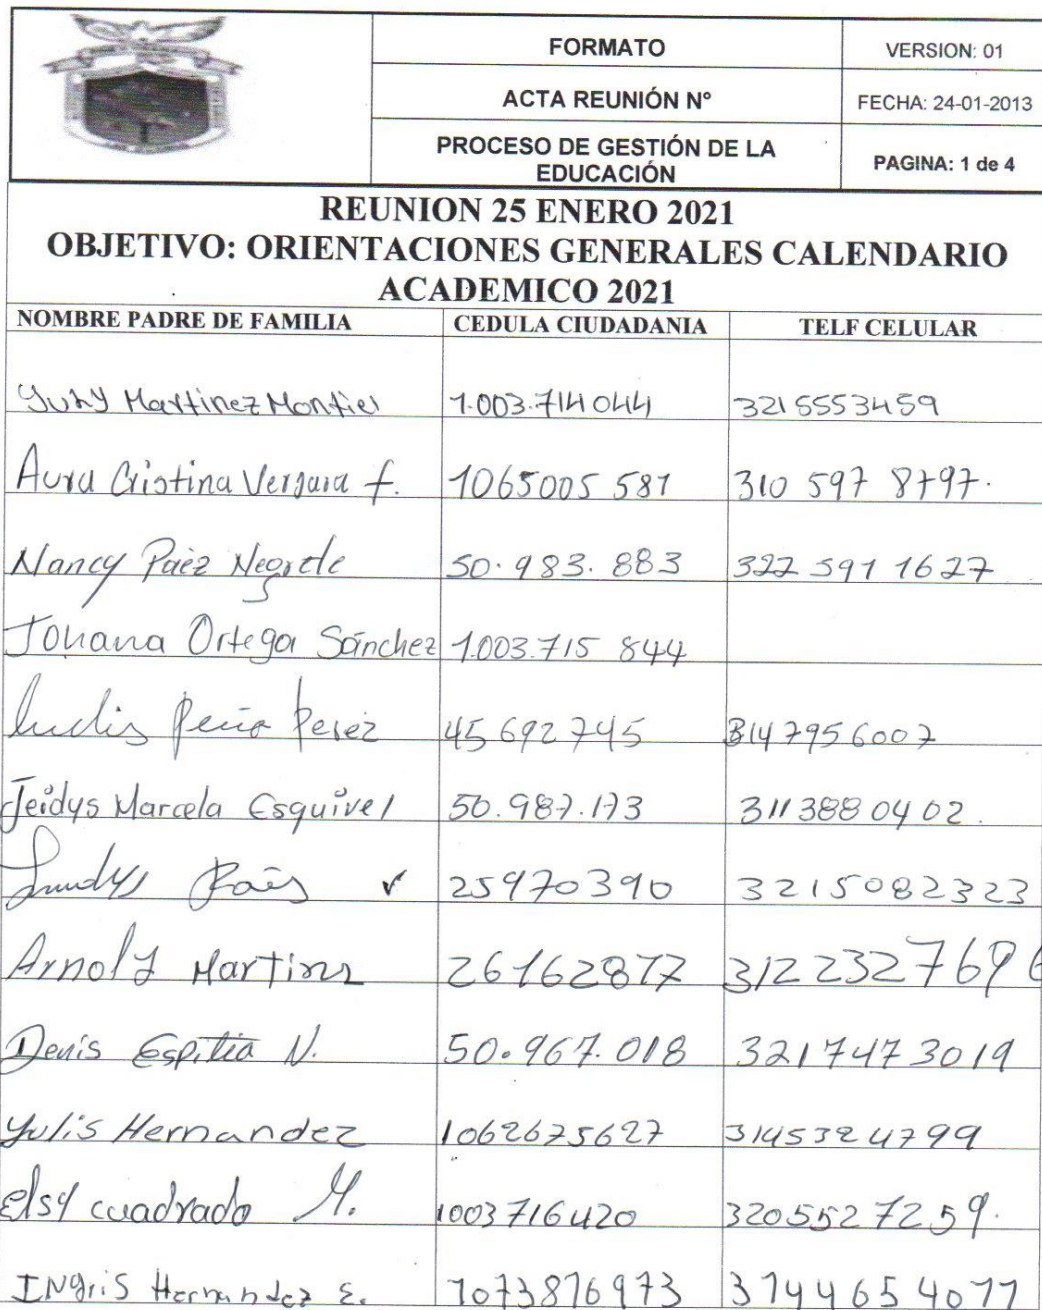 FORMATO VERSION: 01
ACTA REUNIÓN Nº FECHA: 24-01-2013
PROCESO DE GESTIÓN DE LA EDUCACIÓN PAGINA: 1 de 4
REUNION 25 ENERO 2021
OBJETIVO: ORIENTACIONES GENERALES CALENDARIO
ACADEMICO 2021
NOMBRE PADRE DE FAMILIA CEDULA CIUDADANIA TELF CELULAR
Yury Martinez Montiel 1.003.714044 3215553459
Aura Cristina Vergara f. 1065005 581 310 597 8797.
Nancy Páez Negrete 50.983.883 322 591 1627
Johana Ortega Sánchez 1.003.715 844
Ludis Peña Perez 45692745 3147956007
Jeidys Marcela Esquivel 50.987.173 3113880402.
Páez 25970390 3215082323
Arnold Martinez 26162877 3122327696
Denis Espitia N. 50.967.018 3217473019
Yulis Hernandez 1062675627 3145324799
elsy cuadrado M. 1003716420 3205527259.
INgris Hernandez E. 1073816973 3144654011